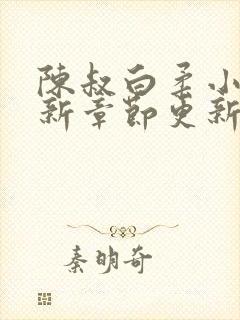 陳叔白柔小
新章節更新
秦明奇